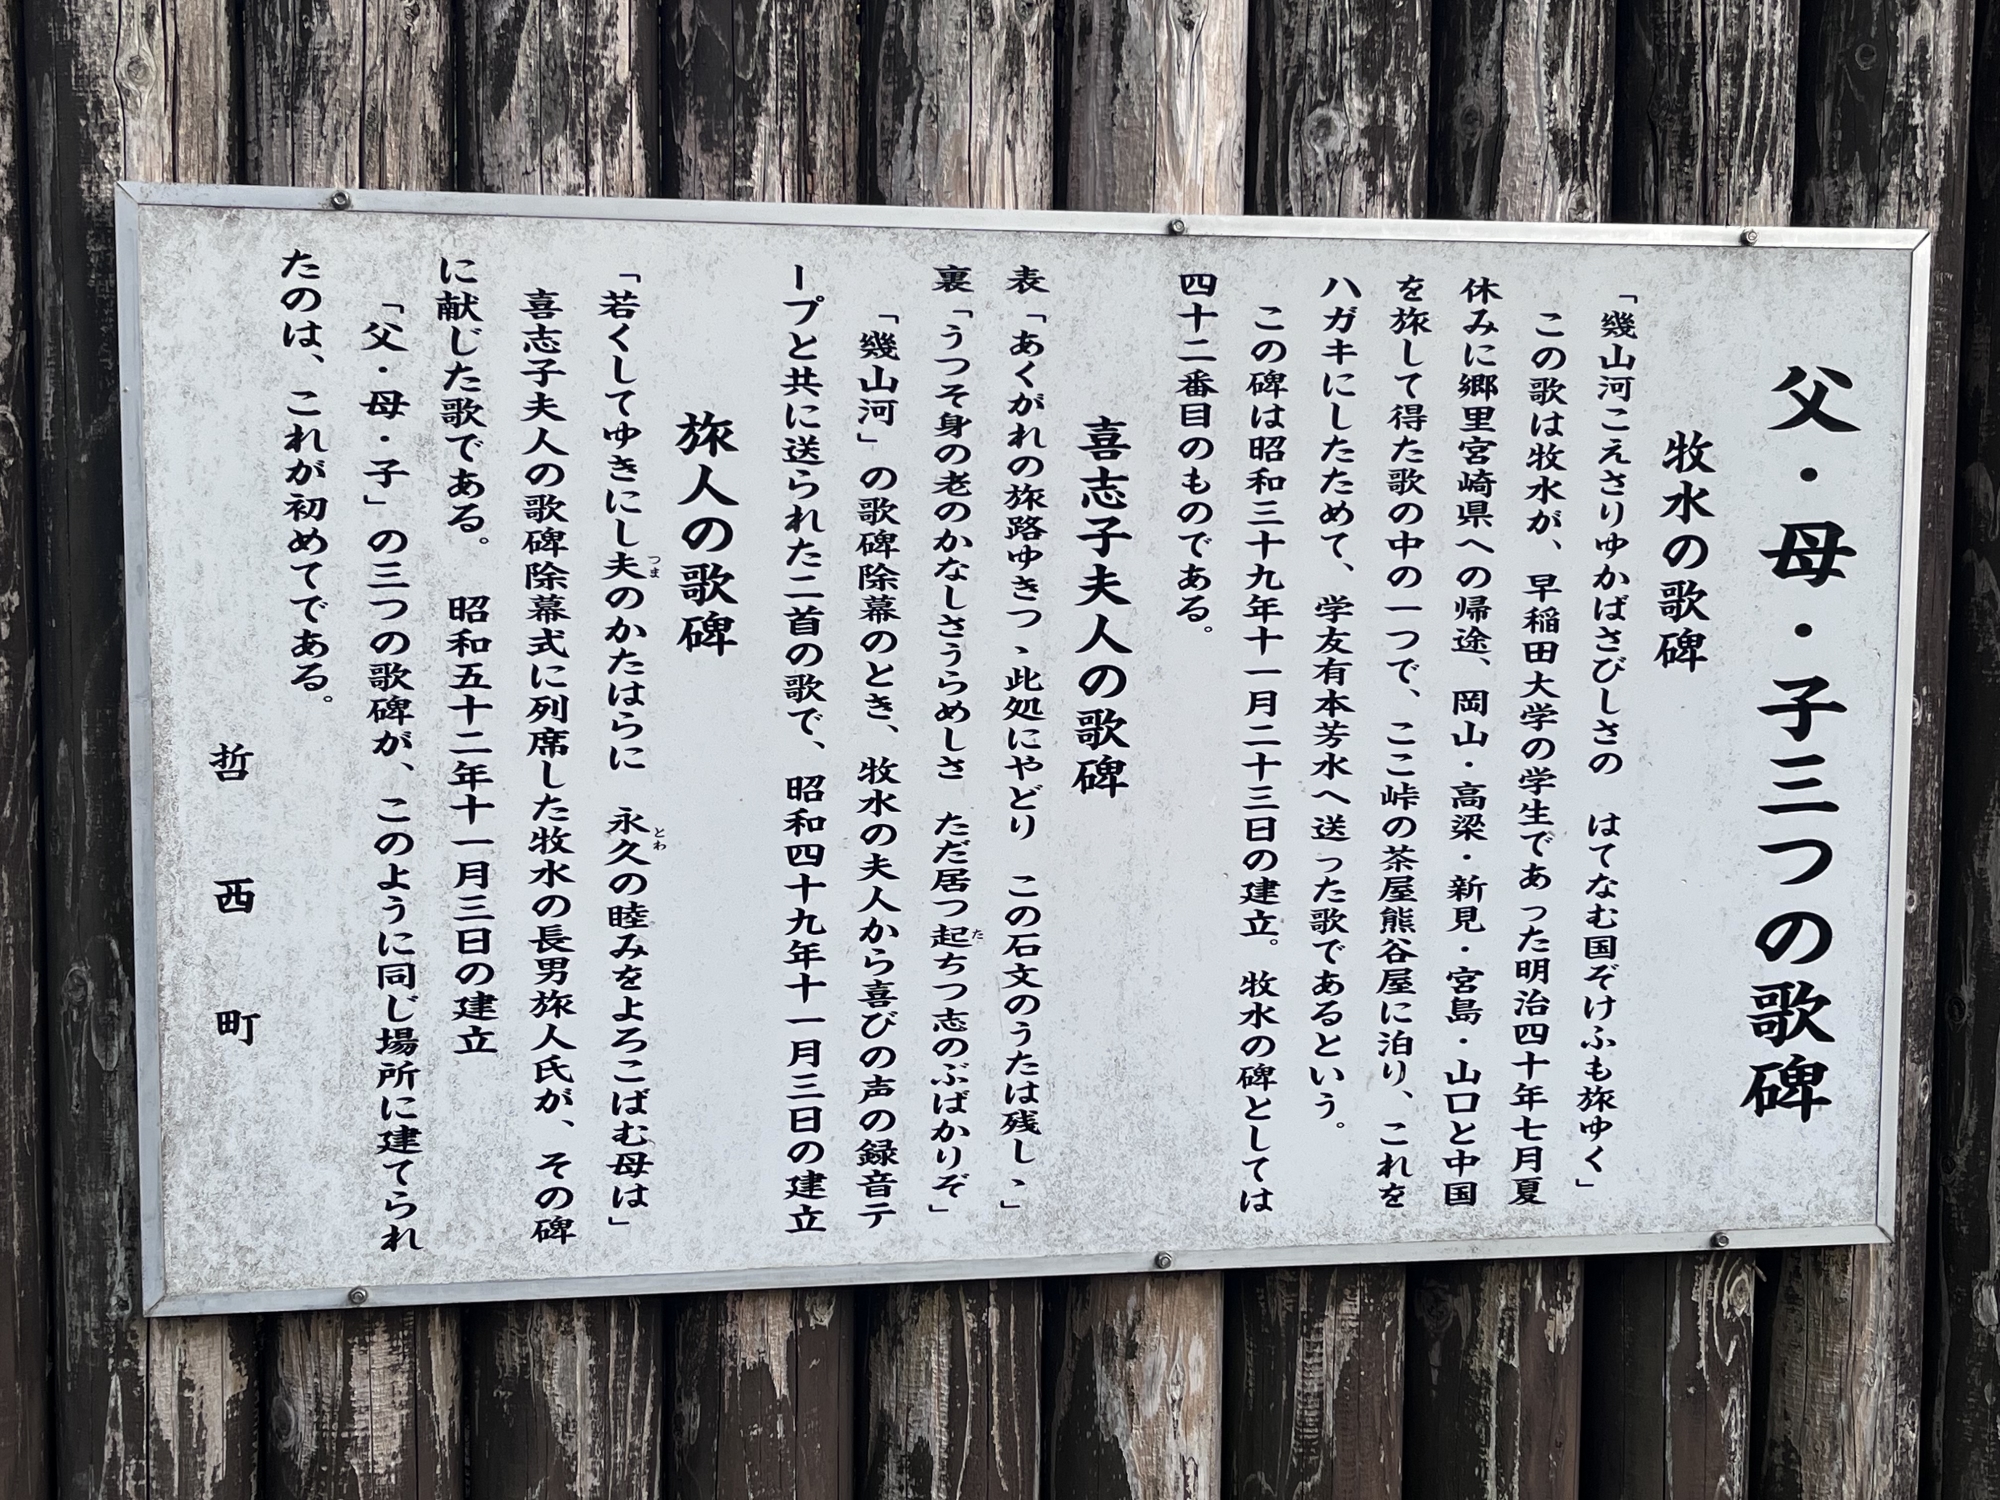 父・母・子三つの歌碑
牧水の歌碑
「幾山河こえさりゆかばさびしさの　はてなむ国ぞけふも旅ゆく」
この歌は牧水が、早稲田大学の学生であった明治四十年七月夏
休みに郷里宮崎県への帰途、岡山・高梁・新見・宮島・山口と中国
を旅して得た歌の中の一つで、ここ峠の茶屋熊谷屋に泊り、これを
ハガキにしたためて、学友有本芳水へ送った歌であるという。
この碑は昭和三十九年十一月二十三日の建立。牧水の碑としては
四十二番目のものである。
喜志子夫人の歌碑
表「あくがれの旅路ゆきつゝ此処にやどり　この石文のうたは残しゝ」
裏「うつそ身の老のかなしさうらめしさ　ただ居つ起ちつ志のぶばかりぞ」
た
「幾山河」の歌碑除幕のとき、牧水の夫人から喜びの声の録音テ
ープと共に送られた二首の歌で、昭和四十九年十一月三日の建立
旅人の歌碑
「若くしてゆきにし夫のかたはらに　永久の睦みをよろこばむ母は」
つま　とわ
喜志子夫人の歌碑除幕式に列席した牧水の長男旅人氏が、その碑
に献じた歌である。　昭和五十二年十一月三日の建立
「父・母・子」の三つの歌碑が、このように同じ場所に建てられ
たのは、これが初めてである。
哲西町